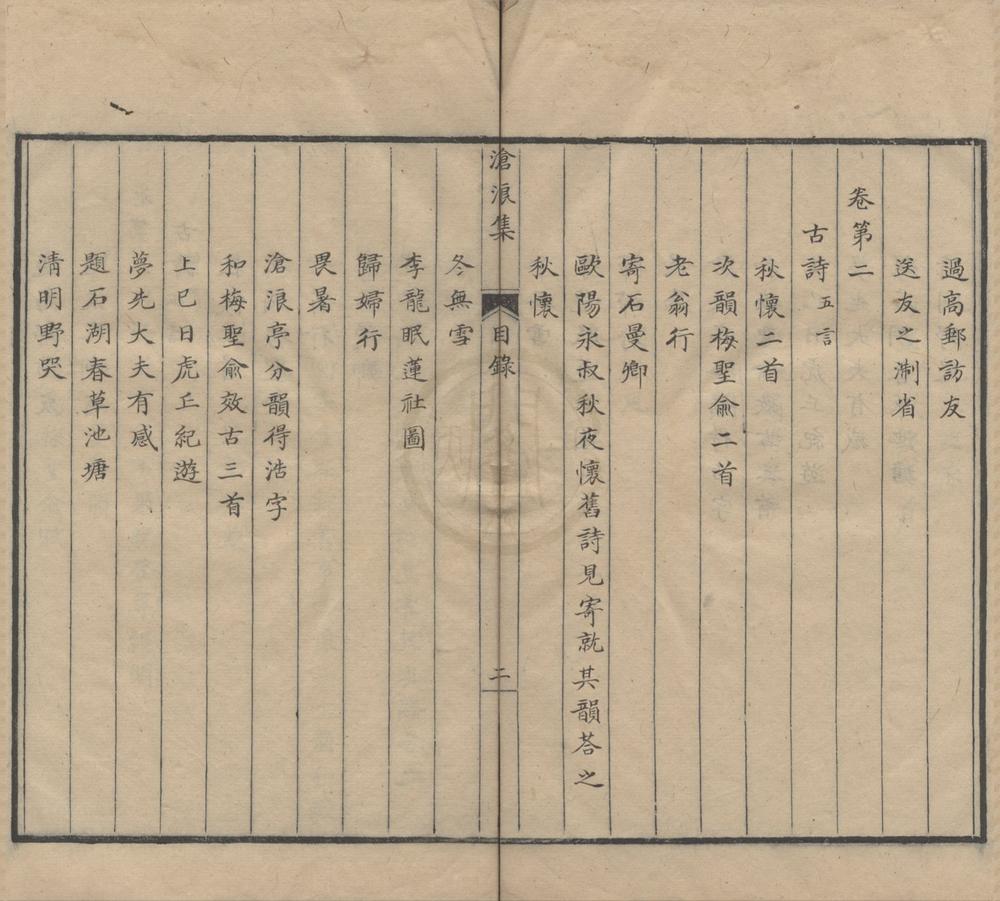 過高郵訪友
送友之淛省
卷第二
古詩五言
秋懷二首
次韻梅聖俞二首
老翁行
寄石曼卿
歐陽永叔秋夜懷舊詩見寄就其韻荅之
秋懷
滄浪集 目錄 二
冬無雪
李龍眠蓮社圖
歸婦行
畏暑
滄浪亭分韻得浩字
和梅聖俞效古三首
上巳日虎丘紀遊
夢先大夫有感
題石湖春草池塘
清明野哭